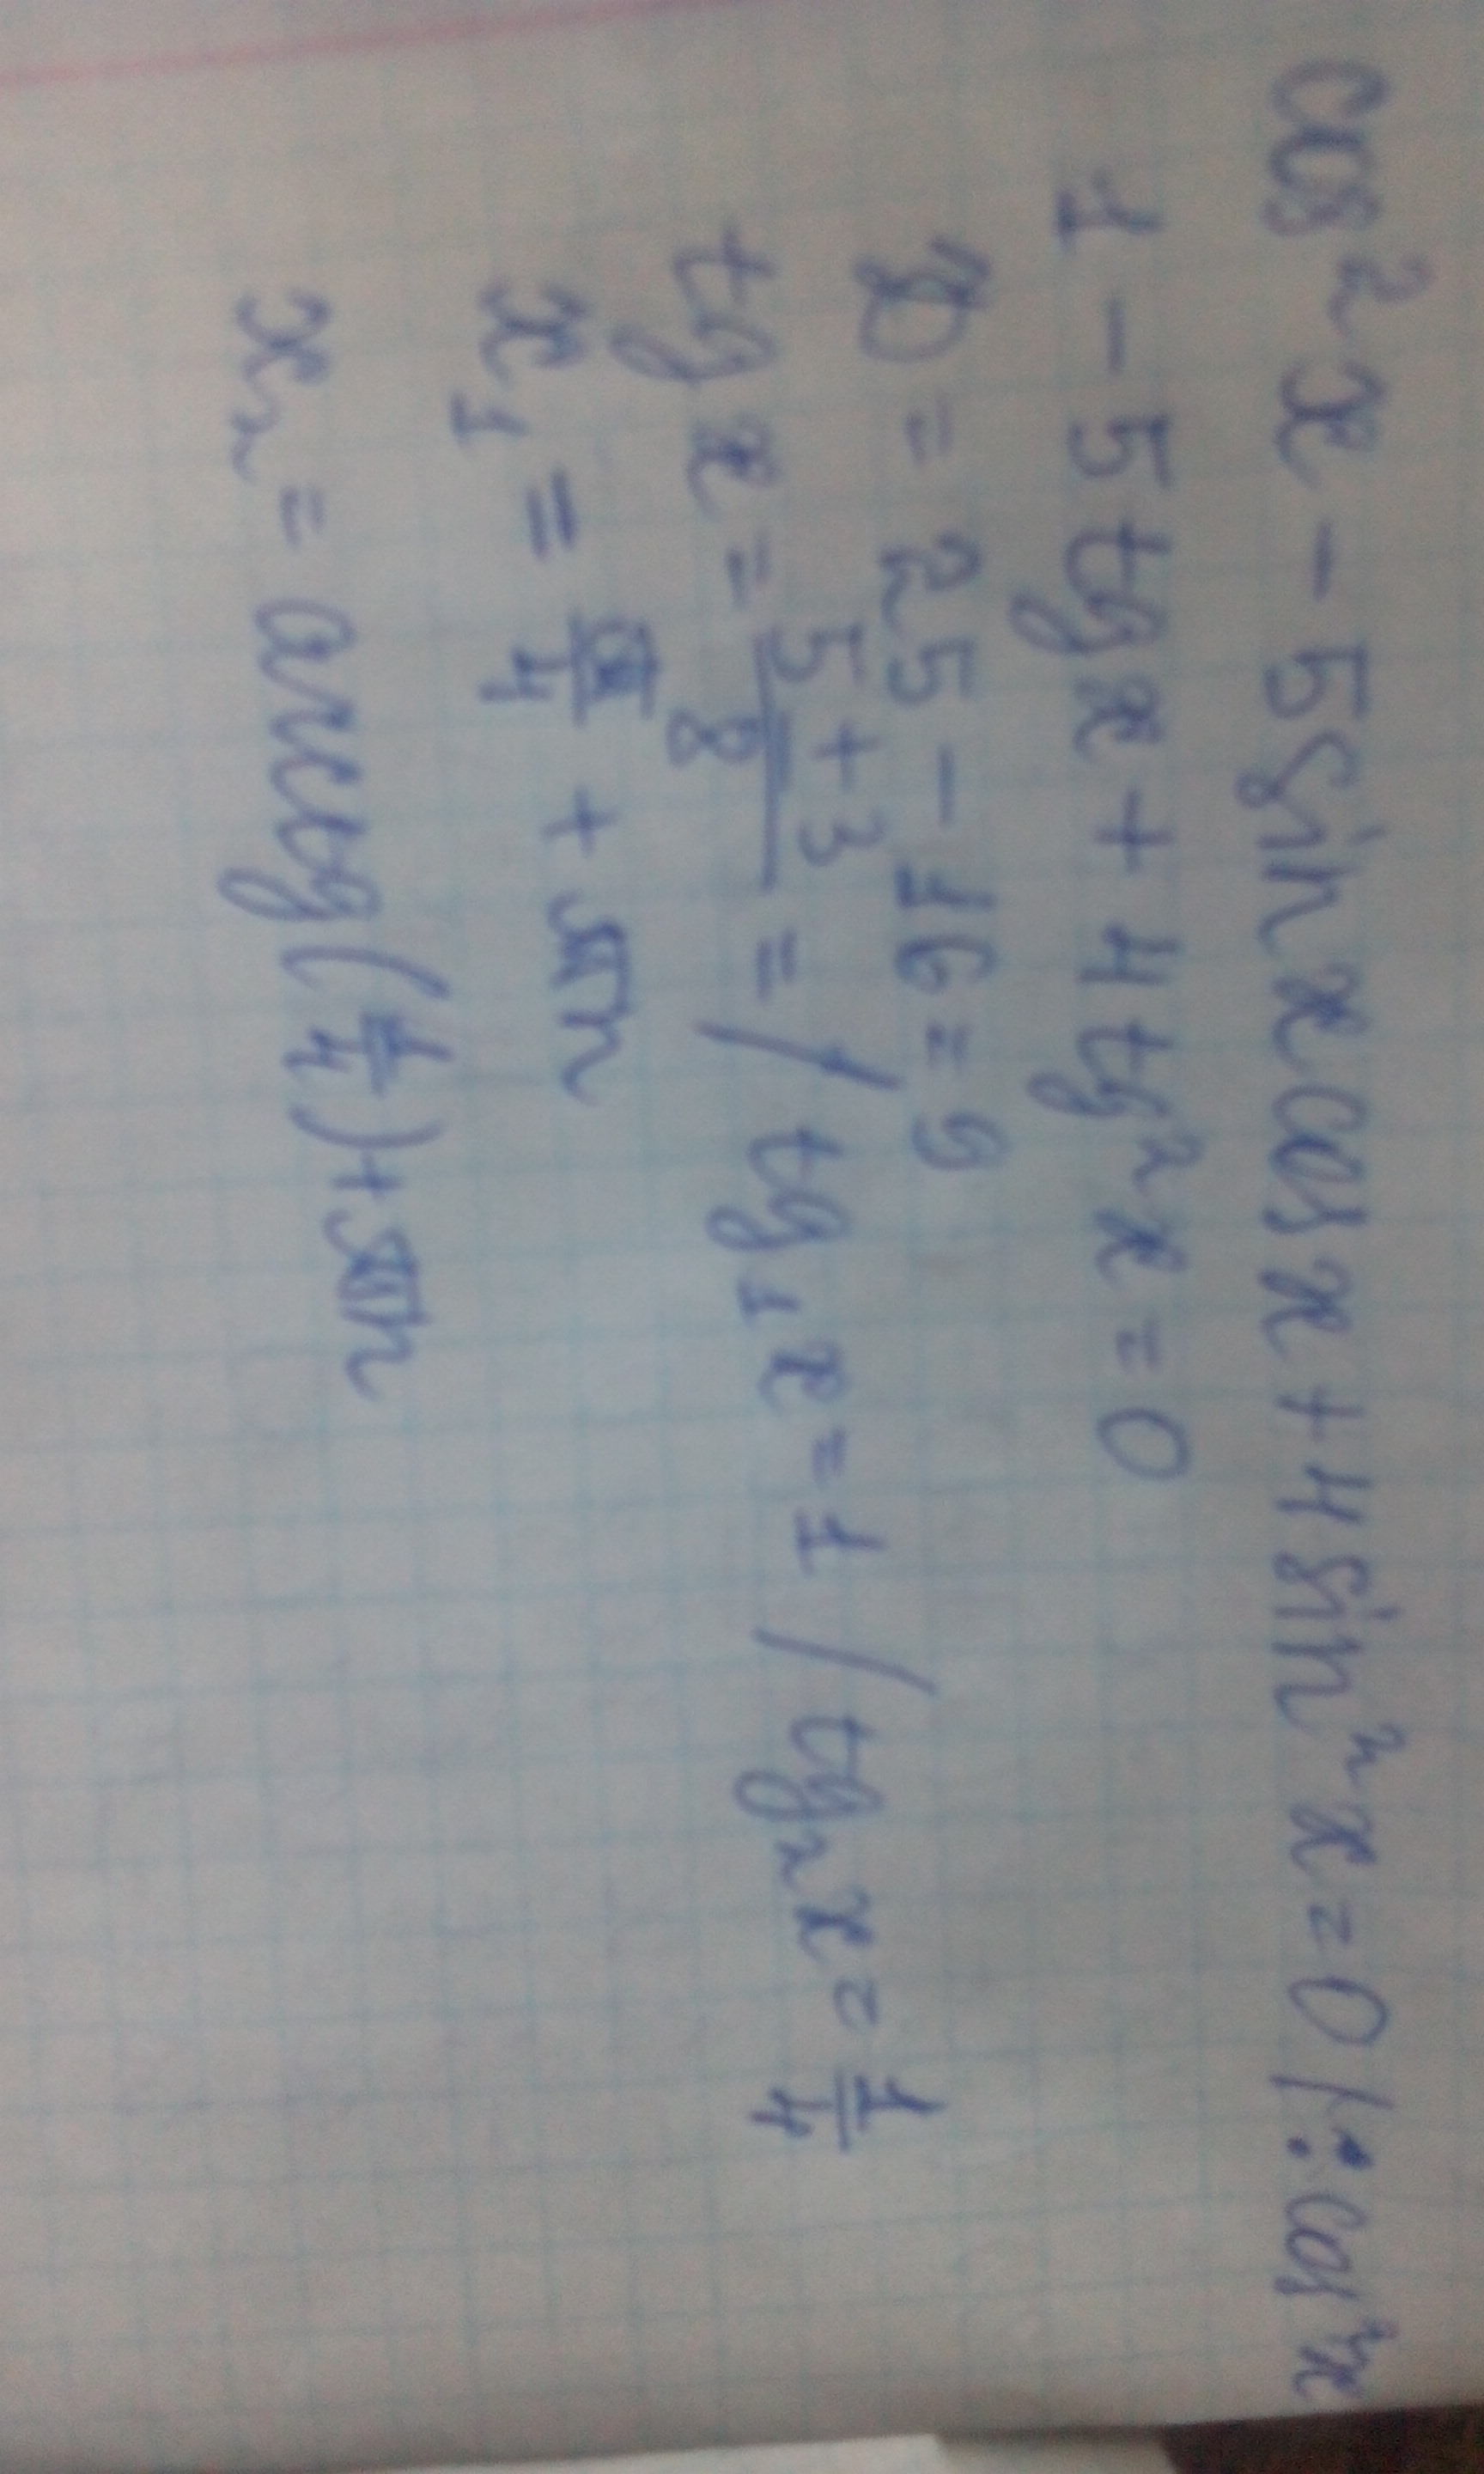 cos²x - 5sinxcosx + 4sin²x = 0 /: cos²x
1 - 5tgx + 4tg²x = 0
D = 25 - 16 = 9
tgx = 5+3/8 = / tg₁x = 1 / tg₂x = 1/4
x₁ = π/4 + πn
x₂ = arctg(1/4) + πn